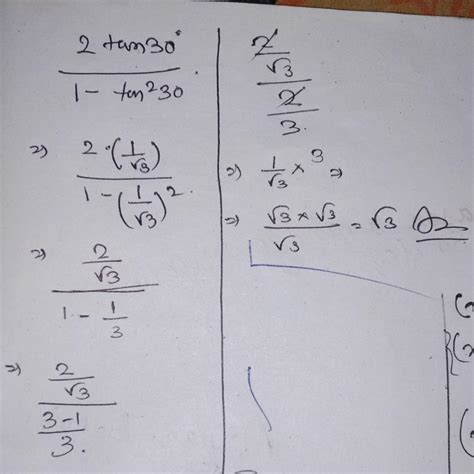 2 tan30°
1 - tan²30
⇒) 2·(1/√3)
1-(1/√3)²
⇒) 2/√3
1 - 1/3
⇒) 2/√3
3-1/3.
2/√3
2/3.
⇒) 1/√3 × 3 ⇒
⇒) √3 × √3/√3 = √3